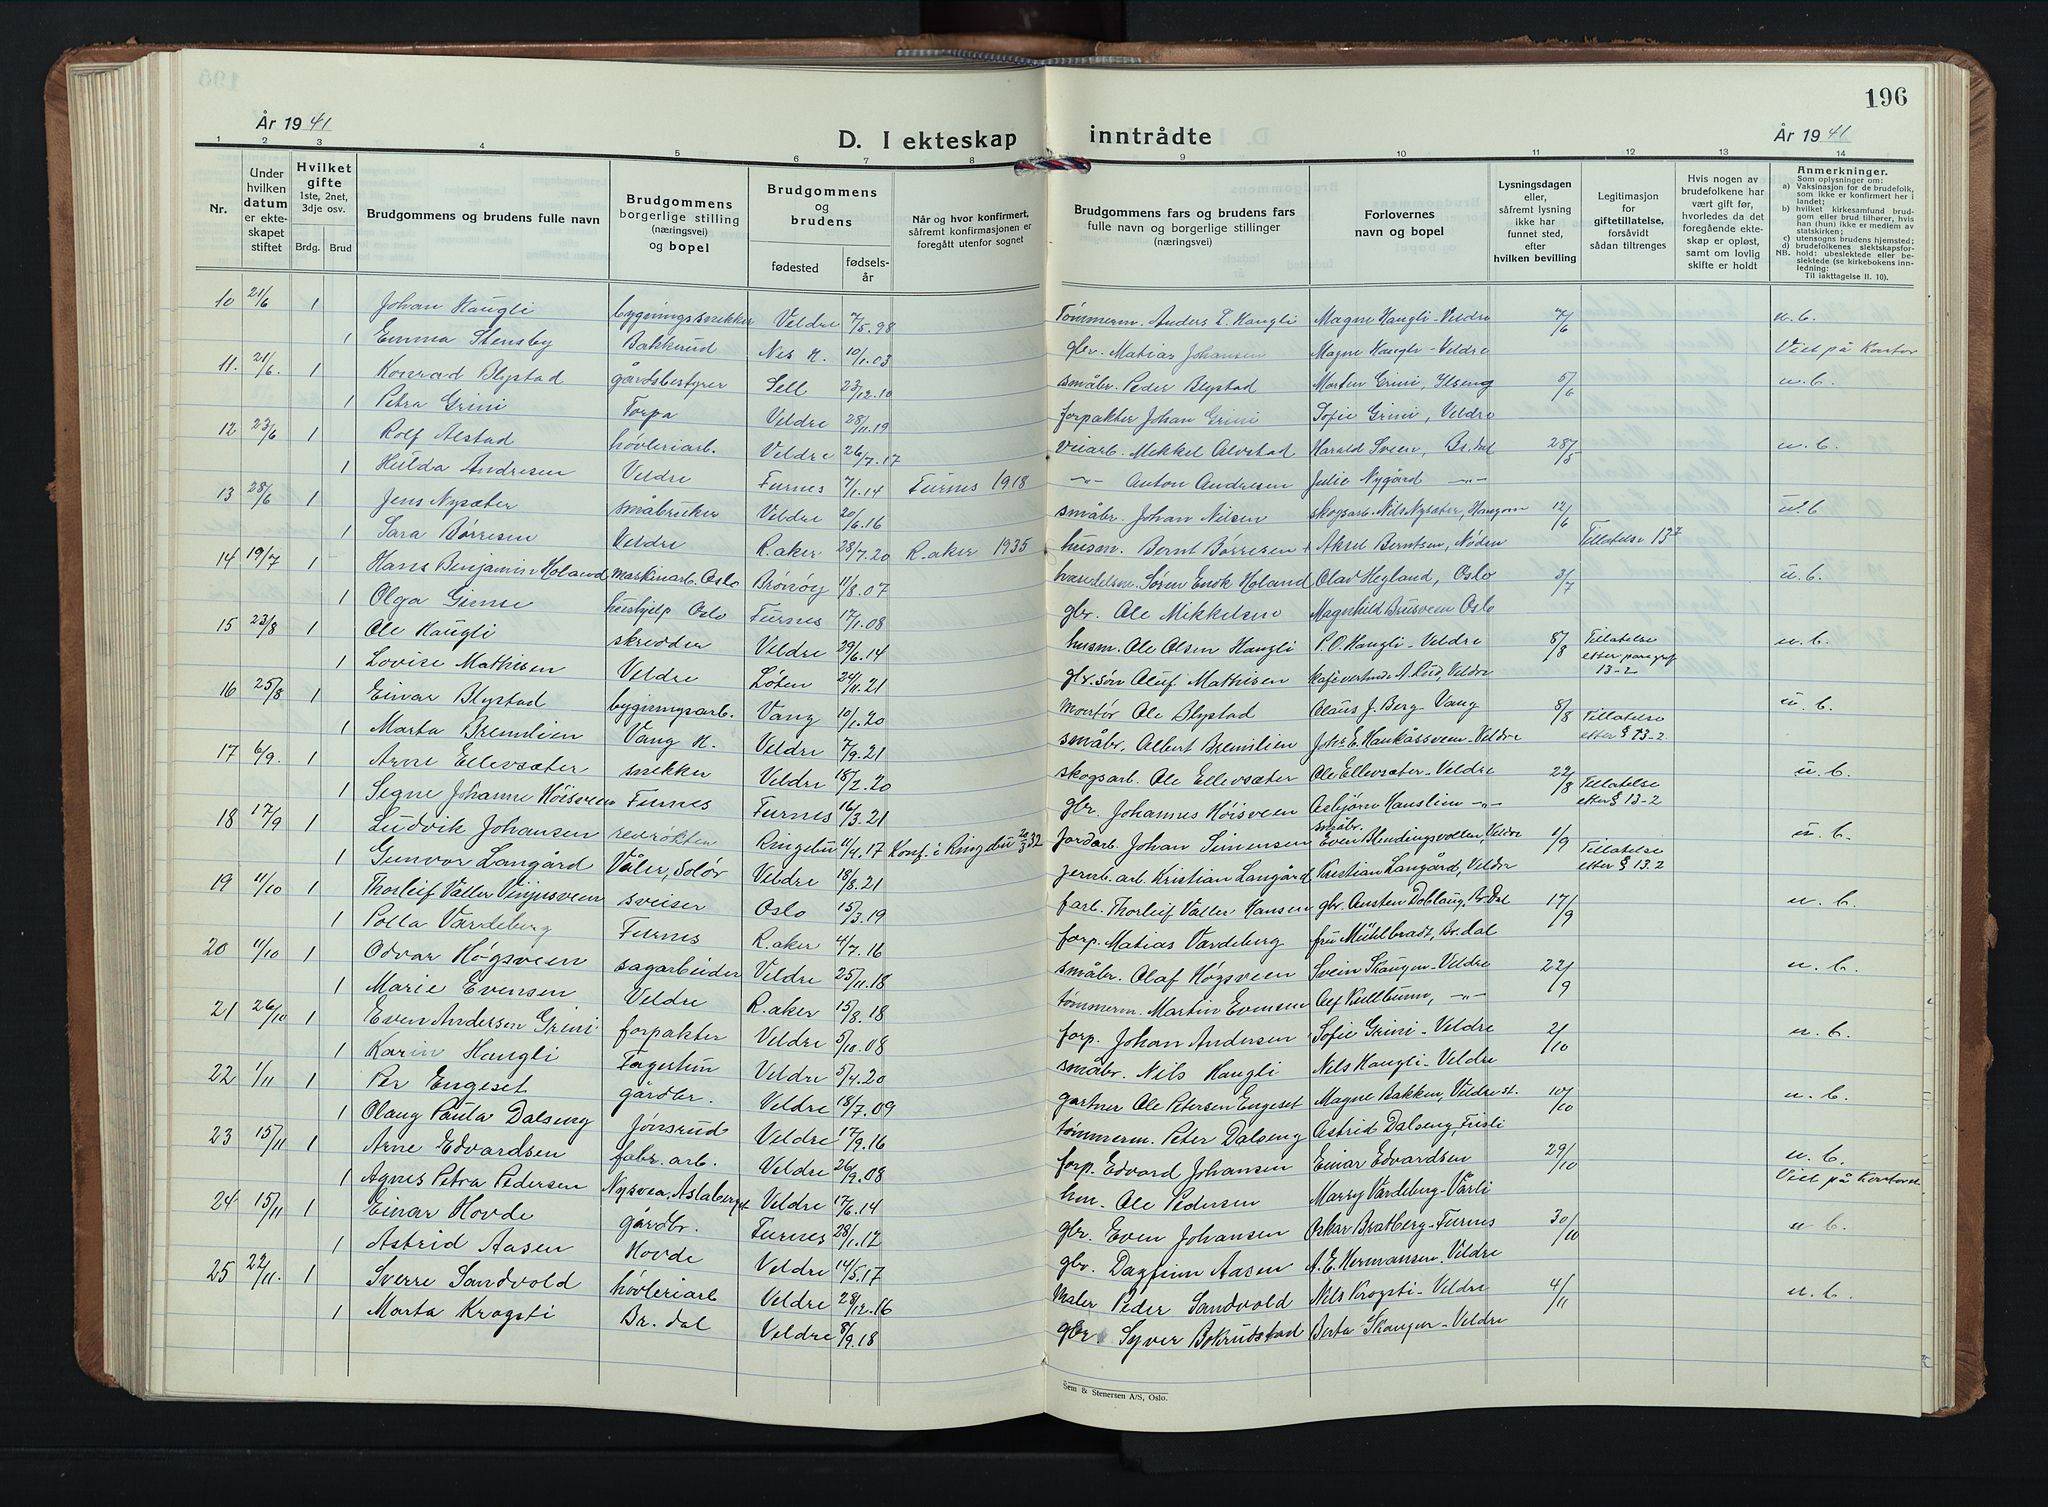 196
År 1941
D. I ekteskap inntrådte
År 1941
1 2 3 4 5 6 7 8 9 10 11 12 13 14
Nr.
Under hvilken datum er ekteskapet stiftet
Hvilket gifte 1ste, 2net, 3dje osv.
Brdg. Brud
Brudgommens og brudens fulle navn
Brudgommens borgerlige stilling (næringsvei) og bopel
Brudgommens og brudens
fødested
fødselsår
Når og hvor konfirmert, såfremt konfirmasjonen er foregått utenfor sognet
Brudgommens fars og brudens fars fulle navn og borgerlige stillinger (næringsvei)
Forlovernes navn og bopel
Lysningsdagen eller, såfremt lysning ikke har funnet sted, efter hvilken bevilling
Legitimasjon for giftetillatelse, forsåvidt sådan tiltrenges
Hvis nogen av brudefolkene har vært gift før, hvorledes da det foregående ekteskap er opløst, samt om lovlig skifte er holdt
Anmerkninger.
Som oplysninger om:
a) Vaksinasjon for de brudefolk, som ikke er konfirmert her i landet;
b) hvilket kirkesamfund brudgom eller brud tilhører, hvis han (hun) ikke er medlem av statskirken;
c) utensogns brudens hjemsted;
d) brudefolkenes slektskapsforhold: ubeslektede eller beslektede (se kirkebokens innledning:
NB. Til iakttagelse II. 10).
10 21/6 1 Johan Haugli bygningssnekker Veldre 7/5.98 Tømmerm. Anders L. Haugli Magne Haugli - Veldre 7/6 u.b.
1 Emma Stensby Bakkerud Nes H. 10/1.03 gbr. Matias Johansen Magne Haugli - Veldre Viet på Kontor
11. 21/6. 1 Konrad Blystad gårdsbestyrer Sell 23/12.10 småbr. Peder Blystad Morten Grini, Ilseng 5/6 u.b.
1 Petra Grini Torpa Veldre 28/11.19 forpakter Johan Grini Sofie Grini, Veldre
12 23/6 1 Rolf Alstad høvleriarb. Veldre 26/7.17 veiarb. Mikkel Alvstad Harald Sveen, Br.dal 28/5 u.b.
1 Hulda Andresen Veldre Furnes 7/1.14 Furnes 1918 -"- Anton Andresen Julie Nygård -"-
13 28/6 1 Jens Nysæter småbruker Veldre 20/6.16 småbr. Johan Nilsen skogsarb. Nils Nysæter, Haugom 12/6 u.b
1 Sara Børresen Veldre R.aker 28/7.20 R.aker 1935 husm. Bernt Børresen + Aksel Berntsen, Nøden Tillatelse 13²
14 19/7 1 Hans Benjamin Holand maskinarb. Oslo Brønøy 11/8.07 Søren Enok Holand Olav Hegland, Oslo 3/7 u.b.
1 Olga Gimse hushjelp Oslo Furnes 17/1.08 gbr. Ole Mikkelsen Magnhild Brusveen Oslo
15 23/8 1 Ole Haugli skredder Veldre 29/6.14 husm. Ole Olsen Haugli P.O. Haugli - Veldre 8/8 Tillatelse etter paragraf 13-2 u.b.
1 Lovise Mathisen Veldre Løten 24/11.21 gbr.søn Oluf Mathisen Veldre
16 25/8 1 Einar Blystad bygningsarb. Vang 10/1.20 Montør Ole Blystad Claus J. Berg - Vang 8/8 Tillatelse etter § 13-2. u.b.
1 Marta Bremlien Vang H. Veldre 7/9.21 småbr. Albert Bremilien Johs E. Haukåssveen - Veldre
17 6/9. 1 Arne Ellevsæter snekker Veldre 18/2.20 skogsarb. Ole Ellevsæter Ole Ellevsæter - Veldre 22/8 Tillatelse etter § 13-2 u.b.
1 Segne Johanne Høisveen Furnes Furnes 16/3.21 gbr. Johannes Høisveen Asbjørn Hanslien -"-
18 17/9 1 Ludvik Johansen revrøkter Ringebu 11/4.17 Konf. i Ringebu 20/3 32 Jordarb. Johan Simensen småbr. Even Blindingsvollen, Veldre 1/9 Tillatelse etter § 13.2 u.b.
1 Gunvor Langård Våler, Solør Veldre 18/8.21 jernb.arb. Kristian Langård Kristian Langård, Veldre
19 11/10 1 Thorleif Valler Vinjusveen sveiser Oslo 15/3.19 f.arb. Thorleif Valler Hansen gbr. Austen Doblaug, Br.Dal 17/9 u.b.
1 Polla Vardeberg Furnes R.aker 4/7.16 forp. Matias Vardeberg fru Mühlbradt, Br.dal
20 11/10 1 Odvar Høgsveen sagarbeider Veldre 25/11.18 småbr. Olaf Høgsveen Svein Skaugen - Veldre 22/9 u.b.
1 Marie Evensen Veldre R.aker 15/8.18 tømmerm. Martin Evensen Alf Kullbunn, -"-
21 26/10 1 Even Andersen Grini forpakter Veldre 5/10.08 forp. Johan Andersen Sofie Grini - Veldre 2/10 u.b.
1 Karin Haugli Fagertun Veldre 5/4.20 småbr. Nils Haugli Nils Haugli - Veldre
22 1/11 1 Per Engeset gårdbr. Veldre 18/7.09 gartner Ole Petersen Engeset Magne Bakken, Veldre st. 10/10 u.b.
1 Olaug Paula Dalseng Jønsrud Veldre 17/9.16 tømmerm. Peter Dalseng Astrid Dalseng, Frisli
23 15/11 1 Arne Edvardsen fabr.arb. Veldre 26/9.08 forp. Edvard Johansen Einar Edvardsen 29/10 u.b.
1 Agnes Petra Pedersen Nysvea, Aslaberget Veldre 17/6.14 hm. Ole Pedersen Marry Vardeberg - Vårli Viet på Kontoret
24 15/11 1 Einar Hovde gårdbr. Furnes 28/1.12 gbr. Even Johansen Oskar Bratberg - Furnes 30/10 u.b.
1 Astrid Aasen Hovde Veldre 14/5.17 gbr. Dagfinn Aasen A.E. Hermansen. Veldre
25 22/11. 1 Sverre Sandvold høvleriarb Veldre 28/12.16 Maler Peder Sandvold Nils Krogsti - Veldre 4/11 u.b.
1 Marta Krogsti Br.dal Veldre 8/9.18 gbr. Syver Bokrudstad Berta Skaugen - Veldre
Sem & Stenersen A/S, Oslo.